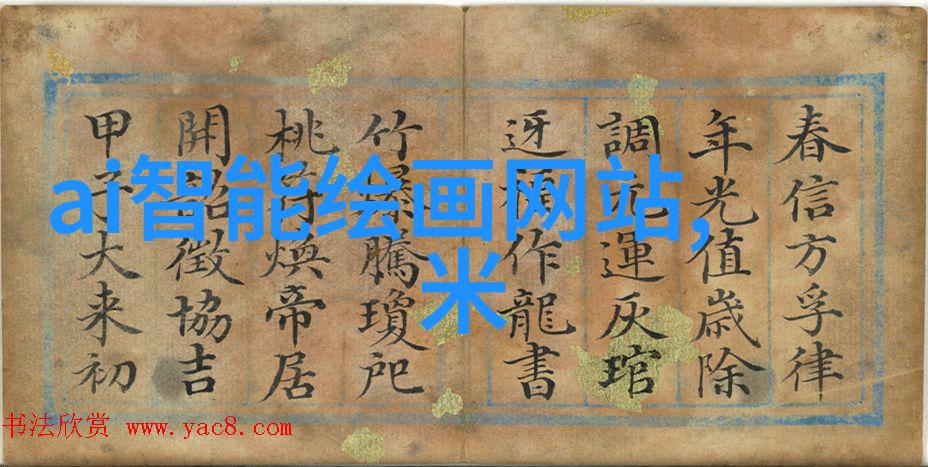 春信方孚律
年光值歳除
調元運灰琯
迓作龍書
竹爆騰瓊戺
桃符煥帝居
開韶徵協吉
甲子大来初
ai智能绘画网站,
米
书法欣赏 www.yac8.com